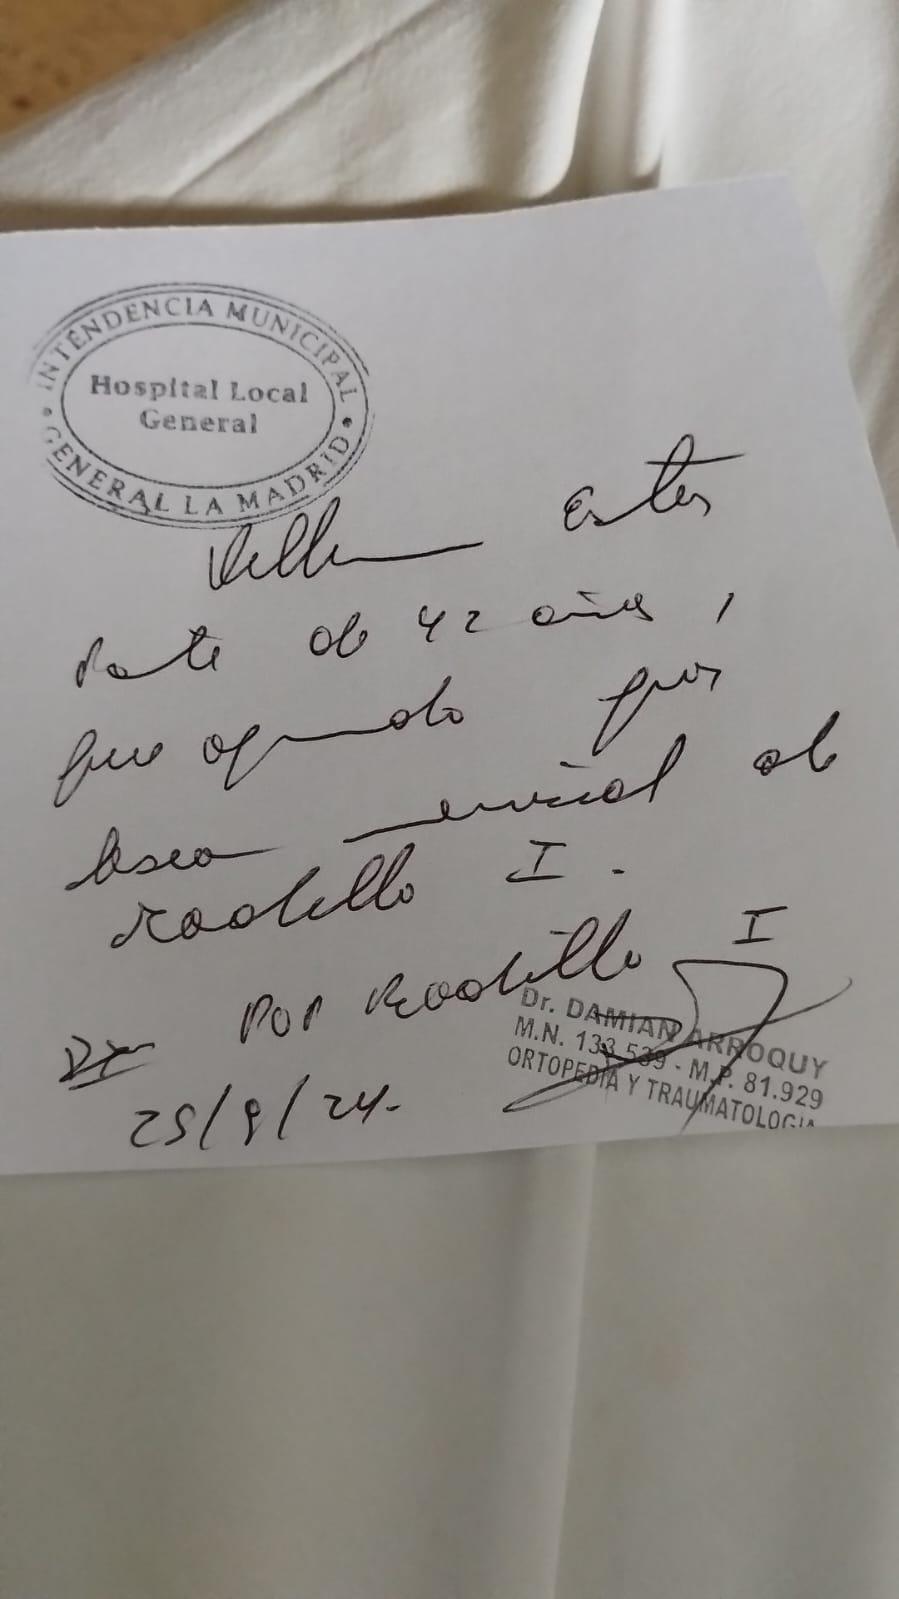 INTENDENCIA MUNICIPAL
Hospital Local
General
GENERAL LA MADRID
Ester
Pacte de 42 años,
fue operado por
lesion meniscal de
rodilla I.
Dx POP Rodilla I
Dr. DAMIAN ARROQUY
M.N. 133.539 - M.P. 81.929
ORTOPEDIA Y TRAUMATOLOGIA
25/9/24.